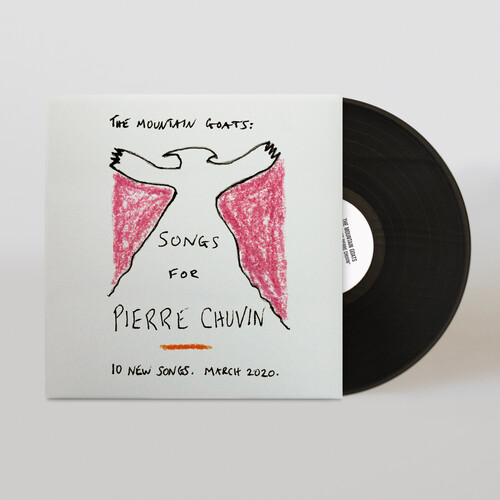 THE MOUNTAIN GOATS:
SONGS
FOR
PIERRE CHUVIN
10 NEW SONGS. MARCH 2020.
THE MOUNTAIN GOATS